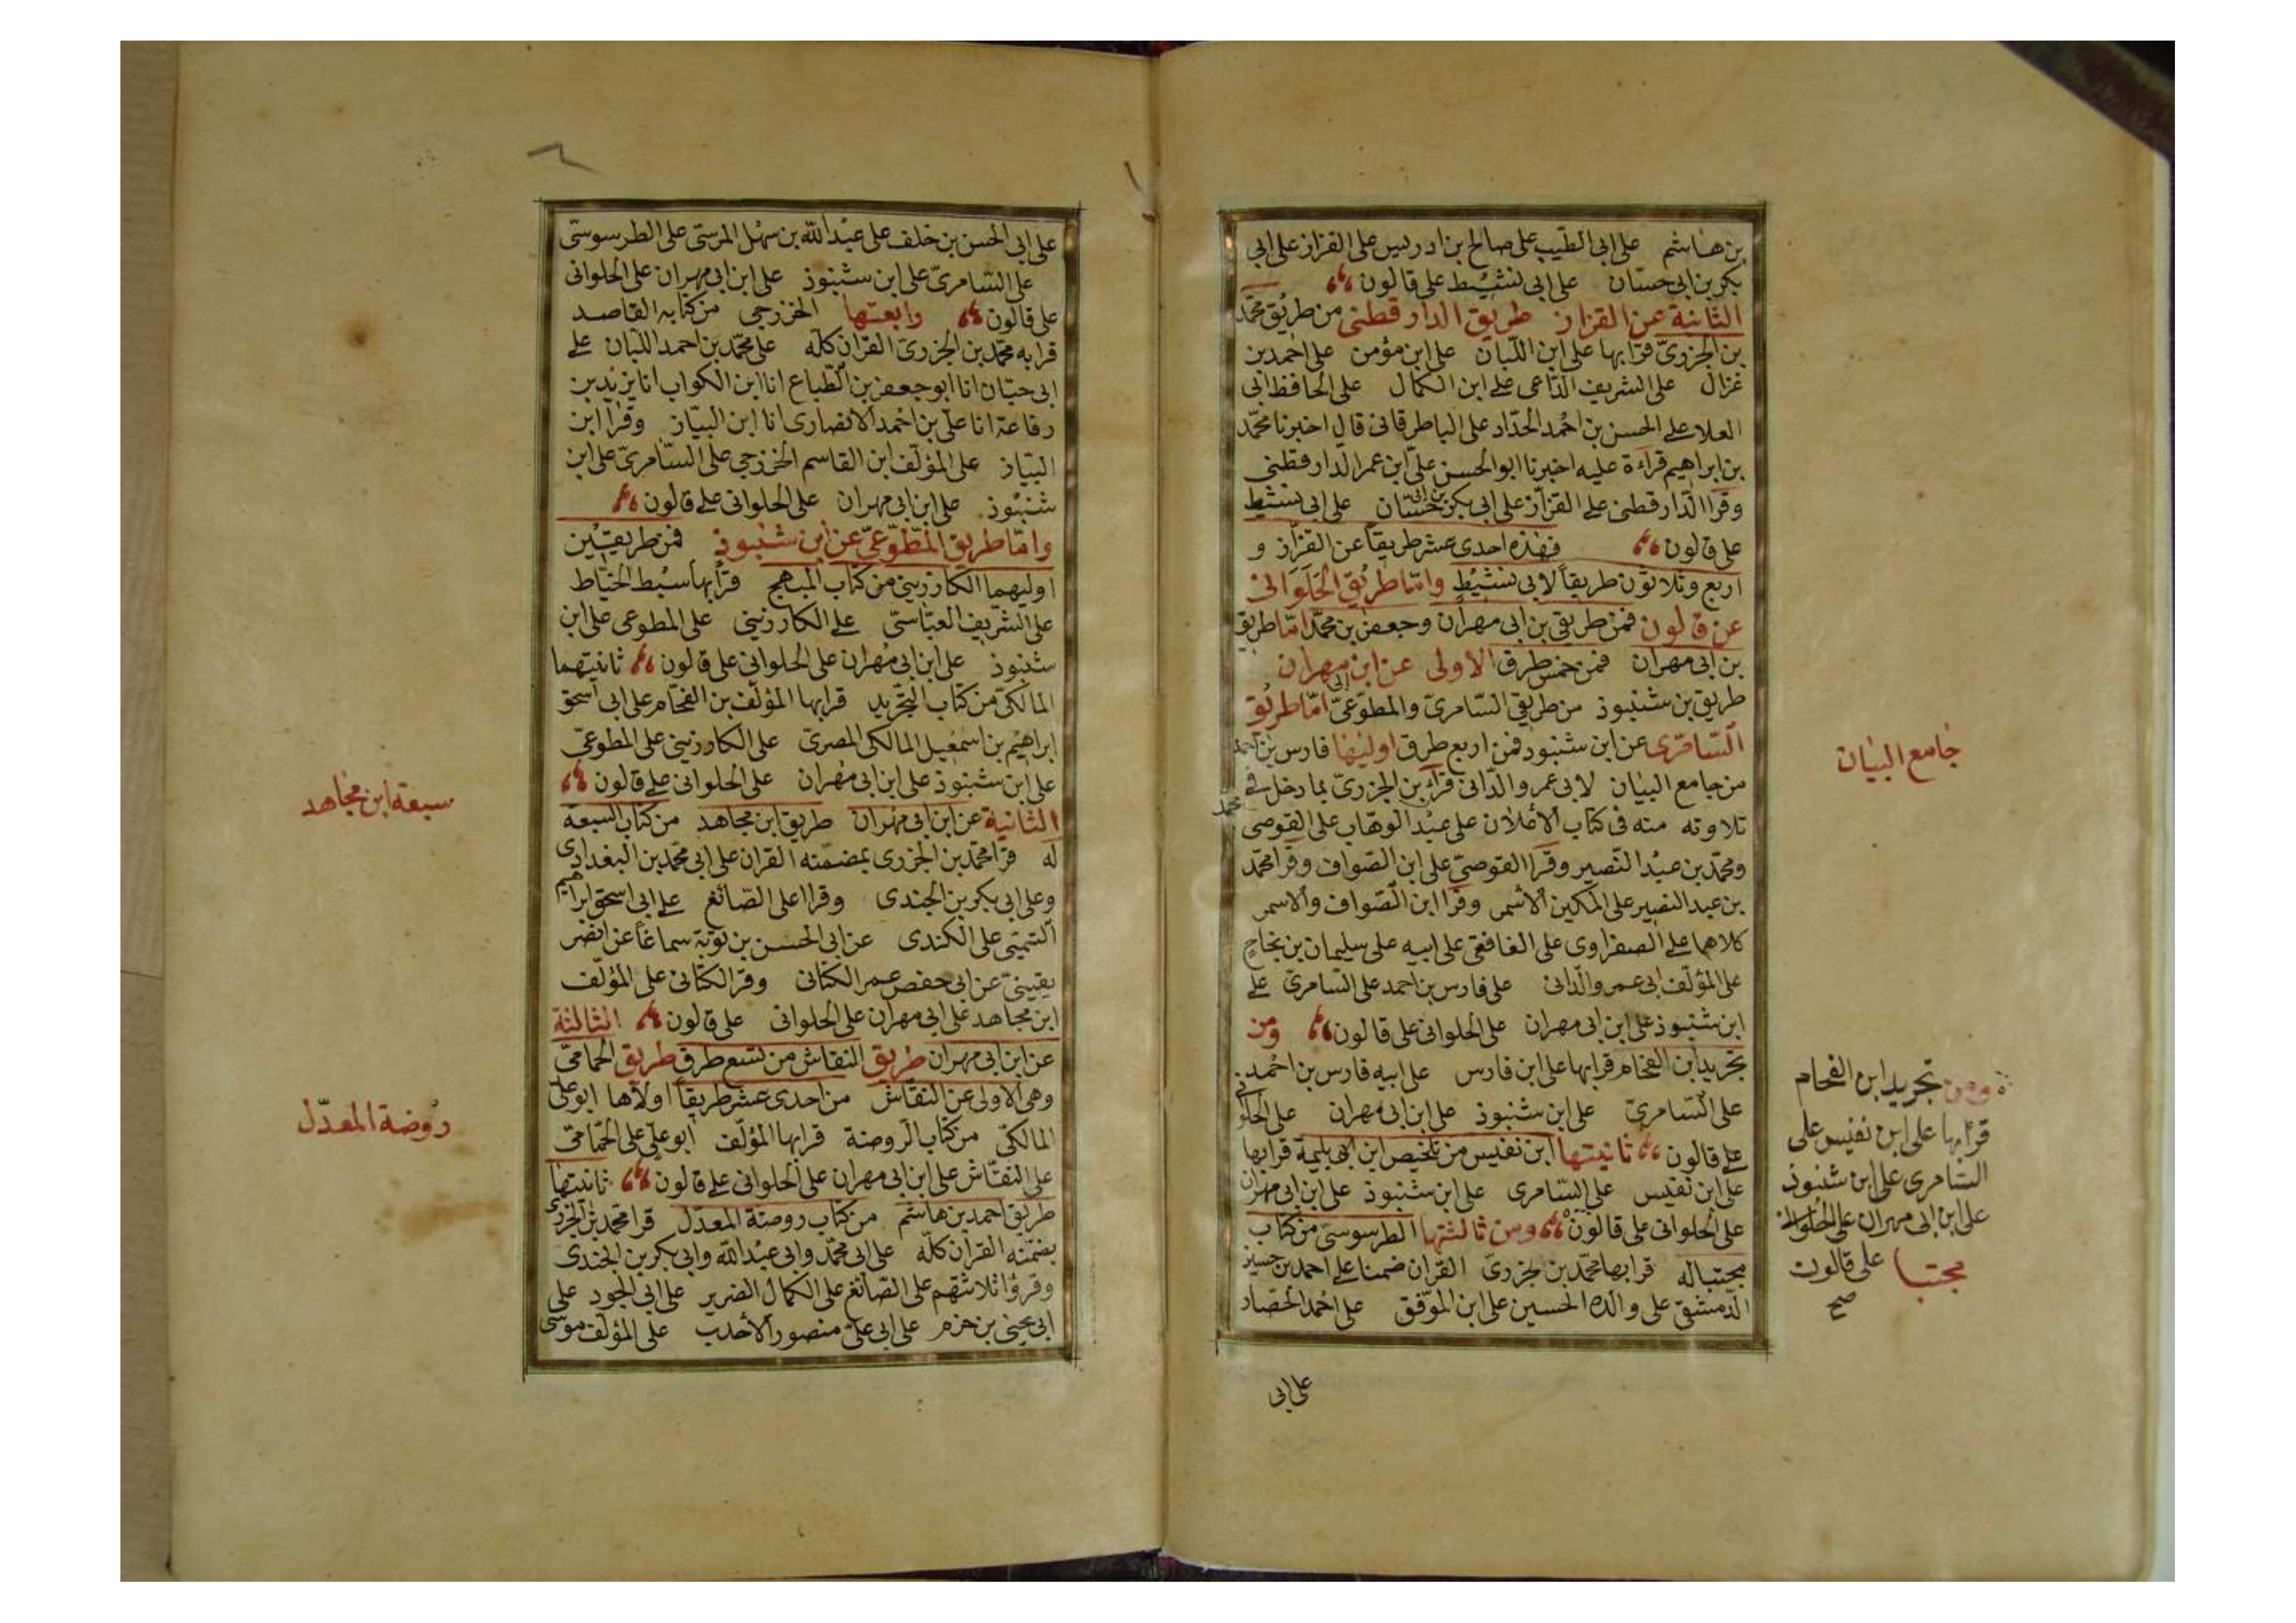 بن هاشم على ابى الطيب على صالح بن ادريس على القزاز على ابى
بكر بن ابى حسان على ابى نشيط على قالون
الثانية عن القزاز طريق الدار قطنى من طريق محمد
بن الجزرى قرا بها على ابن اللبان على ابن مؤمن على احمد بن
غزال على الشريف الداعى على ابن الكمال على الحافظ ابى
العلا على الحسن بن احمد الحداد على الباطرقانى قال اخبرنا محمد
بن ابراهيم قراءة عليه اخبرنا ابو الحسن على ابن عمر الدار قطنى
وقرا الدار قطنى على القزاز على ابى بكر بن ابى حسان على ابى نشيط
على قالون فهذه احدى عشر طريقا عن القزاز و
اربع وثلاثون طريقا لابى نشيط واما طريق الحلوانى
عن قالون فمن طريقى بن ابى مهران وجعفر بن محمد اما طريق
بن ابى مهران فمن خمس طرق الاولى عن ابن ابى مهران
طريق بن شنبوذ من طريقى السامرى والمطوعى اما طريق
السامرى عن ابن شنبوذ فمن اربع طرق اوليها فارس بن احمد
من جامع البيان لابى عمرو الدانى قرا بن الجزرى بما دخل فى
محمد
تلاوته منه فى كتاب الاعلان على عبد الوهاب على القوصى
ومحمد بن عبد النصير وقرا القوصى على ابن الصواف وقرا محمد
بن عبد النصير على المكين الاسمر وقرا ابن الصواف والاسمر
كلاهما على الصفراوى على الغافقى على ابيه على سليمان بن نجاح
على المؤلف ابى عمرو الدانى على فارس بن احمد على السامرى على
ابن شنبوذ على ابن ابى مهران على الحلوانى على قالون ومن
تجريد ابن الفحام قرا بها على ابن فارس على ابيه فارس بن احمد
على السامرى على ابن شنبوذ على ابن ابى مهران على الحلوانى
على قالون ثانيتها ابن نفيس من تلخيص ابن بليمة قرا بها
على ابن نفيس على السامرى على ابن شنبوذ على ابن ابى مهران
على الحلوانى على قالون ومن ثالثتها الطرسوسى من كتاب
مجتبا له قرا بها محمد بن لجزرى القران ضمنا على احمد بن حسين
الدمشقى على والده الحسين على ابن الموفق على احمد الحصار
على ابى
جامع البيان
ومن تجريد ابن الفحام
قرا بها على ابن نفيس على
السامرى على ابن شنبوذ
على ابن ابى مهران على الحلوانى
على قالون
صح
مجتبا
على ابى الحسن بن خلف على عبد الله بن سهل المرسى على الطرسوسى
على السامرى على ابن شنبوذ على ابن ابى مهران على الحلوانى
على قالون رابعتها الخزرجى من كتابه القاصد
قرا به محمد بن الجزرى القران كله على محمد بن احمد اللبان على
ابى حيان انا ابو جعفر بن الطباع انا ابن الكواب انا يزيد بن
رفاعة انا على بن احمد الانصارى انا ابن البياز وقرا ابن
البياز على المؤلف ابن القاسم الخزرجى على السامرى على ابن
شنبوذ على ابن ابى مهران على الحلوانى على قالون
واما طريق المطوعى عن ابن شنبوذ فمن طريقين
اوليهما الكارزينى من كتاب المبهج قرا بها سبط الخياط
على الشريف العباسى على الكارزينى على المطوعى على ابن
شنبوذ على ابن ابى مهران على الحلوانى على قالون ثانيتهما
المالكى من كتاب التجريد قرا بها المؤلف بن الفحام على ابى اسحق
ابراهيم بن اسمعيل المالكى المصرى على الكارزينى على المطوعى
على ابن شنبوذ على ابن ابى مهران على الحلوانى على قالون
الثانية عن ابن ابى مهران طريق ابن مجاهد من كتاب السبعة
له قرا محمد بن الجزرى بمضمنه القران على ابى محمد بن البغدادى
وعلى ابى بكر بن الجندى وقرا على الصائغ على ابى اسحق ابراهيم
التميمى على الكندى عن ابى الحسن بن توبة سماعا عن
عن ابى حفص عمر الكتانى وقرا الكتانى على المؤلف
ابن مجاهد على ابى مهران على الحلوانى على قالون الثالثة
عن ابن ابى مهران طريق النقاش من تسع طرق طريق الحمامى
وهى الاولى عن النقاش من احدى عشر طريقا اولاها ابو على
المالكى من كتاب الروضة قرا بها المؤلف ابو على على الحمامى
على النقاش على ابن ابى مهران على الحلوانى على قالون ثانيتها
طريق احمد بن هاشم من كتاب روضة المعدل قرا محمد بن الجزرى
بضمنه القران كله على ابى محمد وابى عبد الله وابى بكر بن الجندى
وقرؤا ثلاثتهم على الصائغ على الكمال الضرير على ابى الجود على
ابى يحيى بن حزم على ابى على منصور الاحدب على المؤلف موسى
سبعة ابن مجاهد
روضة المعدل